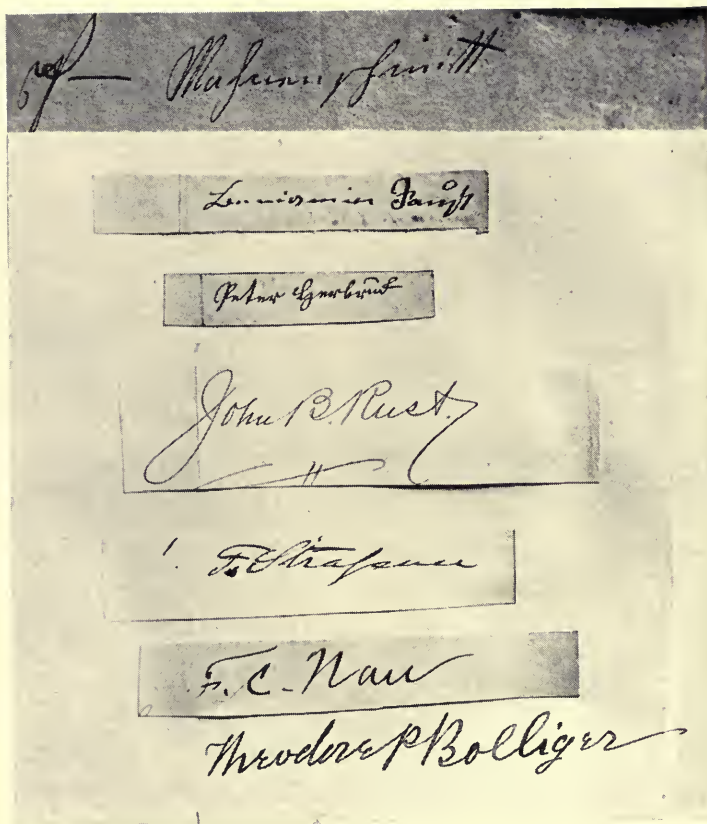 Mahnenschmitt
Benjamin Faust
Peter Herbruck
John B. Rust.
F. Strassner
F. C. Nau
Theodore P Bolliger